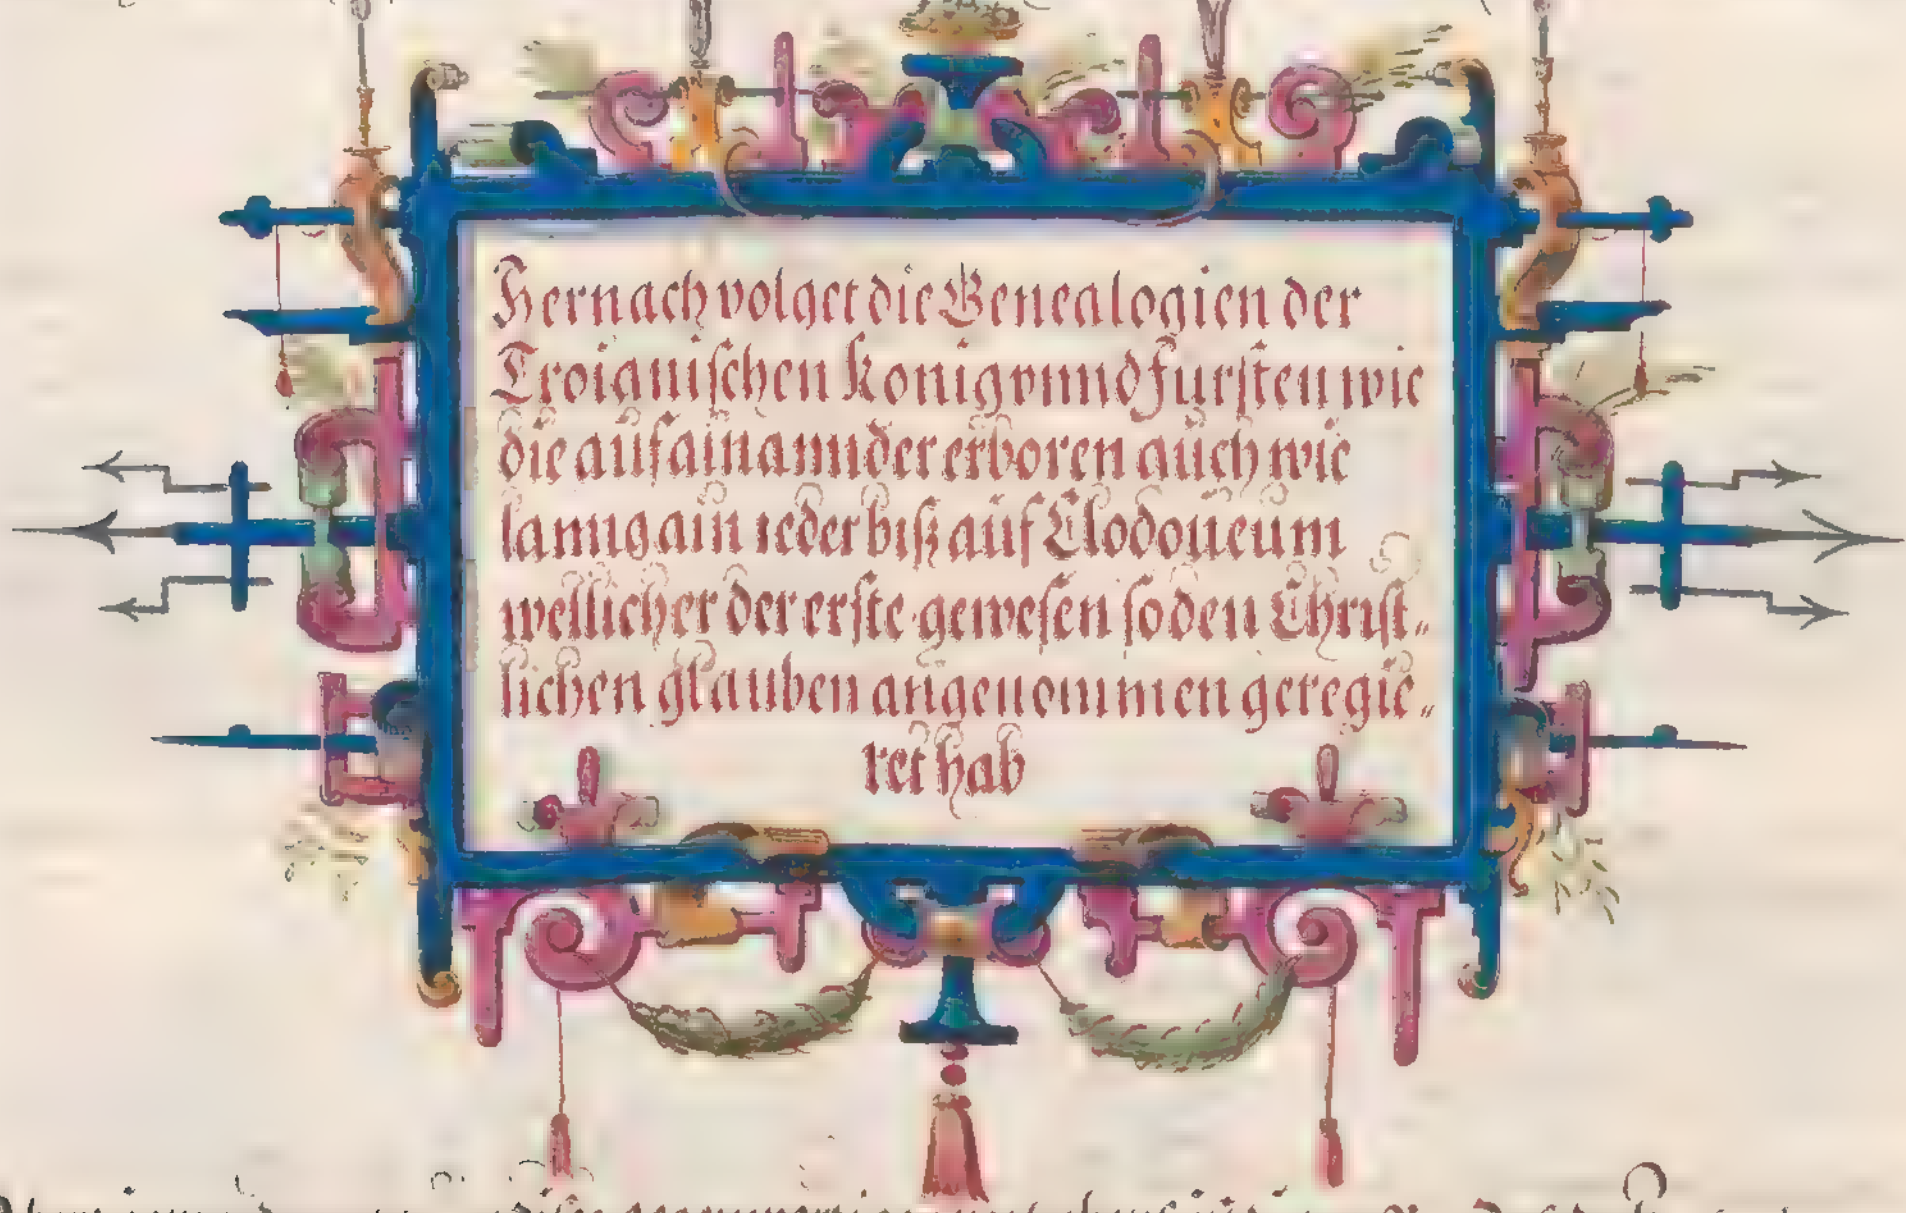 Hernach volget die Genealogien der
Troianischen konig vnnd fursten wie
die aúf ainannder erboren aúch wie
lanng ain ieder biß aúf Clodoueum
wellicher der erste gewesen so den Christ„
lichen glauben angenommen geregie„
ret hab